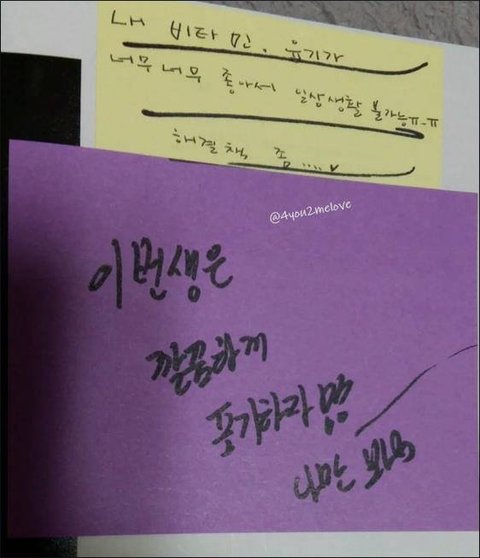 내 비타민, 윤기가
너무너무 좋아서 일상생활 불가능ㅠ-ㅠ
해결책 좀....♥
@4you2melove
이번생은
깔끔하게
포기하라
나만 봐요